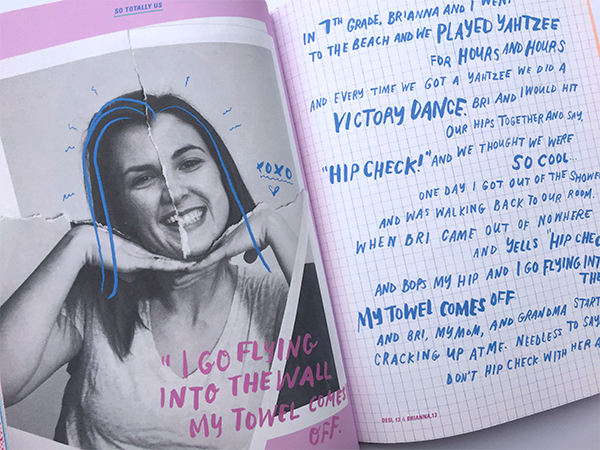 SO TOTALLY US
XOXO
"I GO FLYING
INTO THE WALL
MY TOWEL COMES
OFF.
IN 7TH GRADE, BRIANNA AND I WENT
TO THE BEACH AND WE PLAYED YAHTZEE
FOR HOURS AND HOURS
AND EVERY TIME WE GOT A YAHTZEE WE DID A
VICTORY DANCE. BRI AND I WOULD HIT
OUR HIPS TOGETHER AND SAY,
"HIP CHECK!" AND WE THOUGHT WE WERE
SO COOL...
ONE DAY I GOT OUT OF THE SHOWER
AND WAS WALKING BACK TO OUR ROOM.
WHEN BRI CAME OUT OF NOWHERE
AND YELLS "HIP CHEC
AND BOPS MY HIP AND I GO FLYING INT
THE
MY TOWEL COMES OFF
AND BRI, MY MOM, AND GRANDMA START
CRACKING UP AT ME. NEEDLESS TO SAY
DON'T HIP CHECK WITH HER A
DESI, 13 & BRIANNA, 13